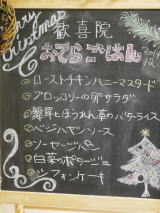 Merry
Christmas
歓喜院
おてらごはん
12
①ローストチキンハニーマスタード
②ブロッコリーの卵サラダ
③舞茸とほうれん草のバターライス
④ベジハヤシソース
⑤ソーセージパン
⑥白菜のポタージュ
⑦シフォンケーキ